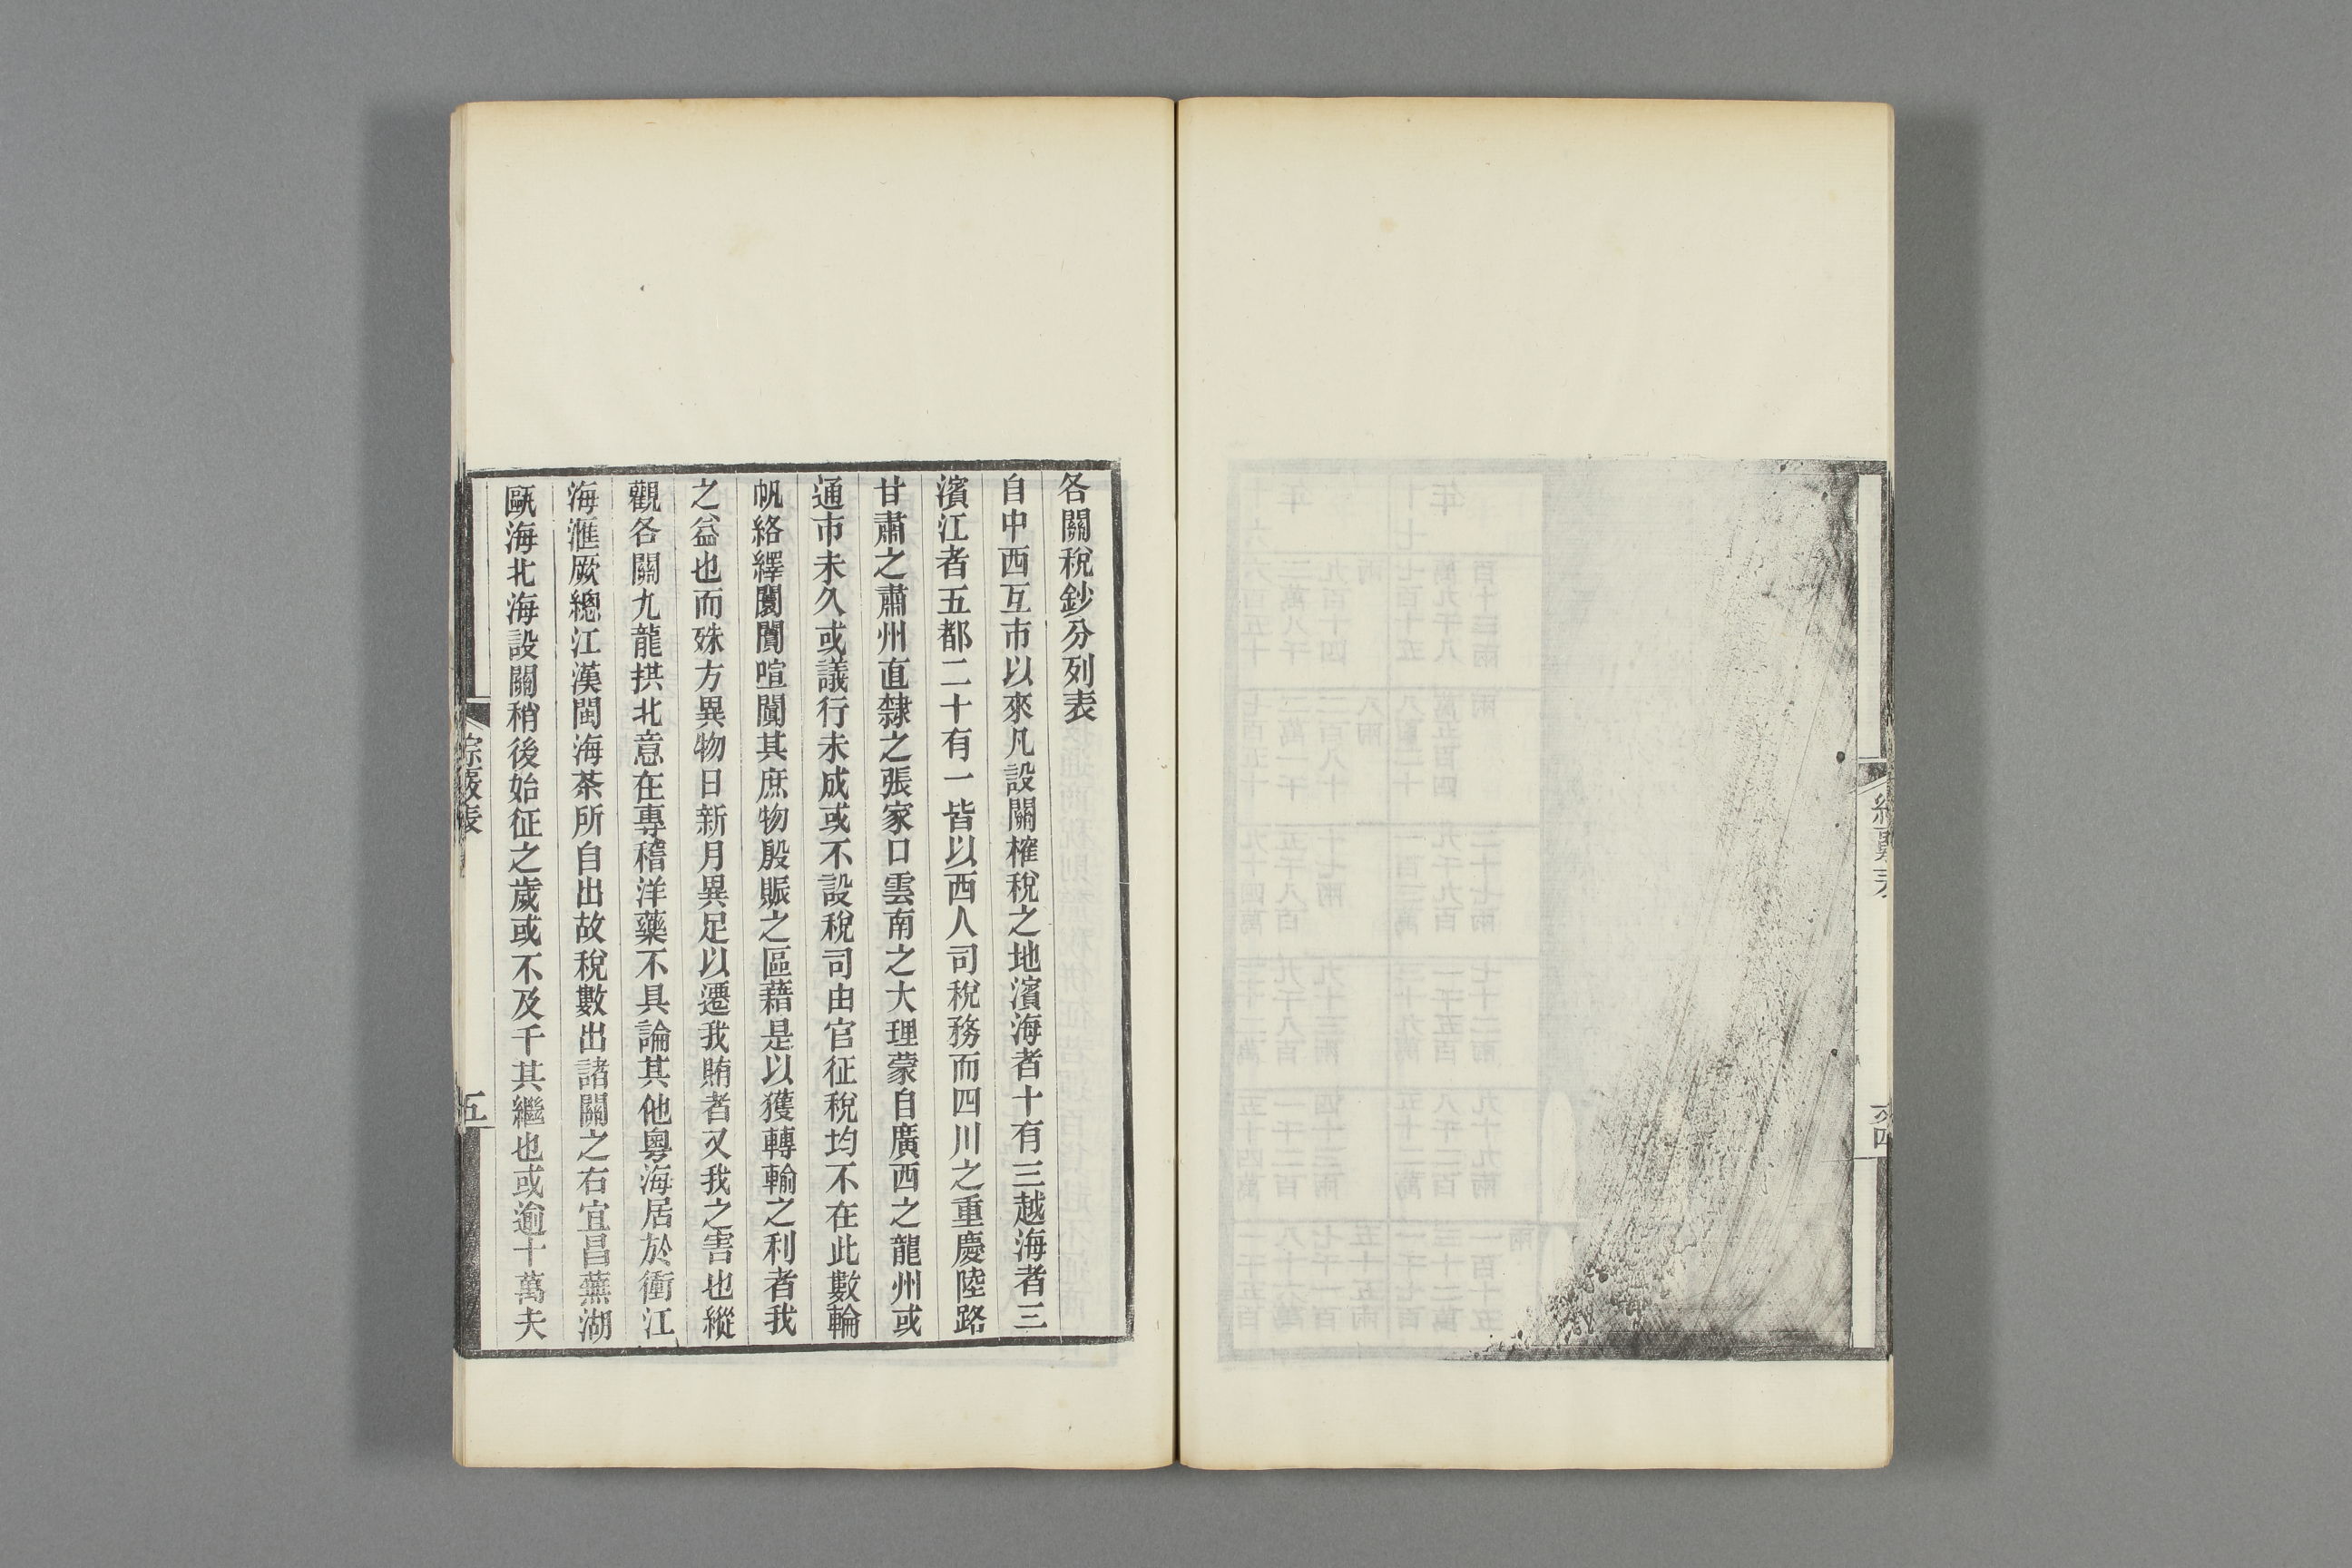 各關稅鈔分列表
自中西互市以來凡設關榷稅之地濱海者十有三越海者三
濱江者五都二十有一皆以西人司稅務而四川之重慶陸路
甘肅之肅州直隸之張家口雲南之大理蒙自廣西之龍州或
通市未久或議行未成或不設稅司由官征稅均不在此數輪
帆絡繹闤闠喧闐其庶物殷賑之區藉是以獲轉輸之利者我
之益也而殊方異物日新月異足以遷我賄者又我之害也縱
觀各關九龍拱北意在專稽洋藥不具論其他粵海居於衝江
海滙厥總江漢閩海茶所自出故稅數出諸關之右宜昌蕪湖
甌海北海設關稍後始征之歲或不及千其繼也或逾十萬夫
綜覈表
五